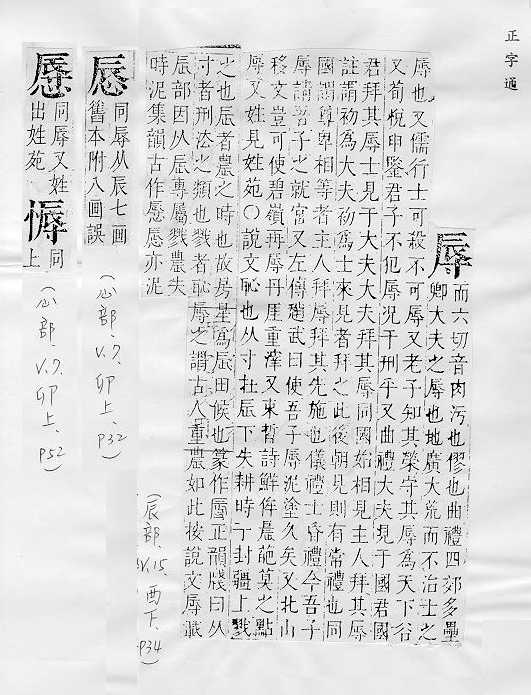 正字通
辱 而六切音肉污也僇也曲禮四郊多壘
卿大夫之辱也地廣大荒而不治士之
辱也又儒行士可殺不可辱又老子知其榮守其辱為天下谷
又荀悅申鑒君子不犯辱況于刑乎又曲禮大夫見于國君國
君拜其辱士見于大夫大夫拜其辱同國始相見主人拜其辱
註謂初為大夫初為士來見者拜之此後朝見則有常禮也同
國謂尊卑相等者主人拜辱拜其先施也儀禮士昏禮今吾子
辱請吾子之就宮又左傳趙武曰使吾子辱泥塗久矣又北山
移文豈可使碧嶺再辱丹厓重滓又束晳詩鮮侔晨葩莫之點
辱又姓見姓苑○說文恥也从寸在辰下失耕時于封疆上戮
之也辰者農之時也故房星為辰田候也篆作辱正韻牋曰从
寸者刑法之類也戮者恥辱之謂古人重農如此按說文辱載
辰部因从辰專屬戮農失
時泥集韻古作 亦泥
同辱从辰七畫
舊本附八畫誤
(心部、V.7、卯上、P32)
同辱又姓
出姓苑
同
上
(心部、V.7、卯上、P52)
(辰部、V.15、酉下、P34)